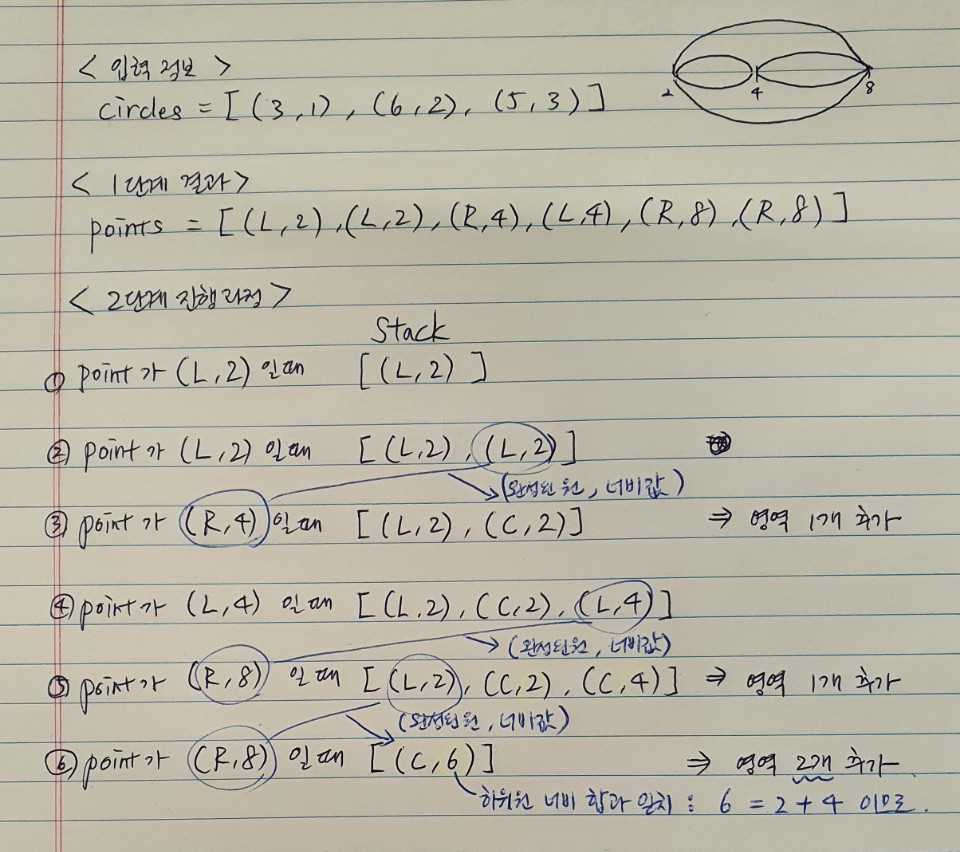 < 입력 정보 >
circles = [ (3,1) , (6,2), (5,3) ]
2 4 8
< 1단계 결과 >
points = [ (L,2) ,(L,2) ,(R,4) ,(L,4) ,(R,8) ,(R,8) ]
< 2단계 진행과정 >
Stack
① point가 (L,2) 일때 [ (L,2) ]
② point가 (L,2) 일때 [ (L,2) , (L,2) ]
(완성된 원 , 너비값)
③ point가 (R,4) 일때 [ (L,2) , (C,2) ] ⇒ 영역 1개 추가
④ point가 (L,4) 일때 [ (L,2) , (C,2) , (L,4) ]
(완성된원 , 너비값)
⑤ point가 (R,8) 일때 [ (L,2) , (C,2) , (C,4) ] ⇒ 영역 1개 추가
(완성된 원 , 너비값)
⑥ point가 (R,8) 일때 [ (C,6) ] ⇒ 영역 2개 추가
하위원 너비 합과 일치 : 6 = 2+4 이므로.